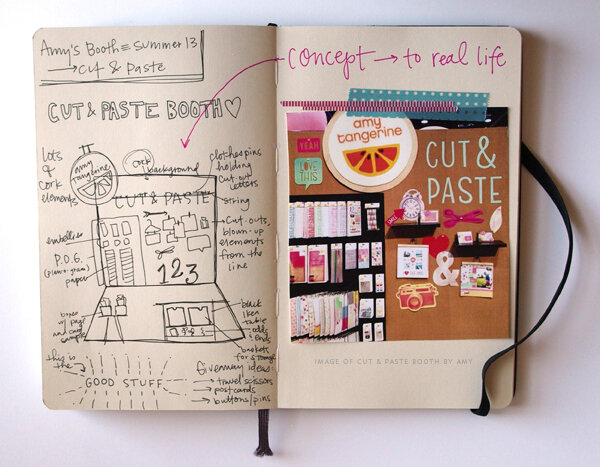 Amy's Booth = Summer 13
→ Cut & Paste
CUT & PASTE BOOTH ♡
lots
of
cork
elements
amy
tangerine
cork
background
clothespins
holding
cut out
letters
CUT & PASTE
string
Cut-outs,
blown-up
elements
from the
line
embellies
P.O.G.
paper
123
boxes
w/ page
and card
samples
black
ikea
table
odds
& ends
baskets
for storage
this is
the
GOOD STUFF
Giveaway ideas:
→ travel scissors
→ postcards
→ buttons/pins
concept → to real life
YEAH
LOVE
THIS
amy
tangerine
CUT &
PASTE
&
IMAGE OF CUT & PASTE BOOTH BY AMY